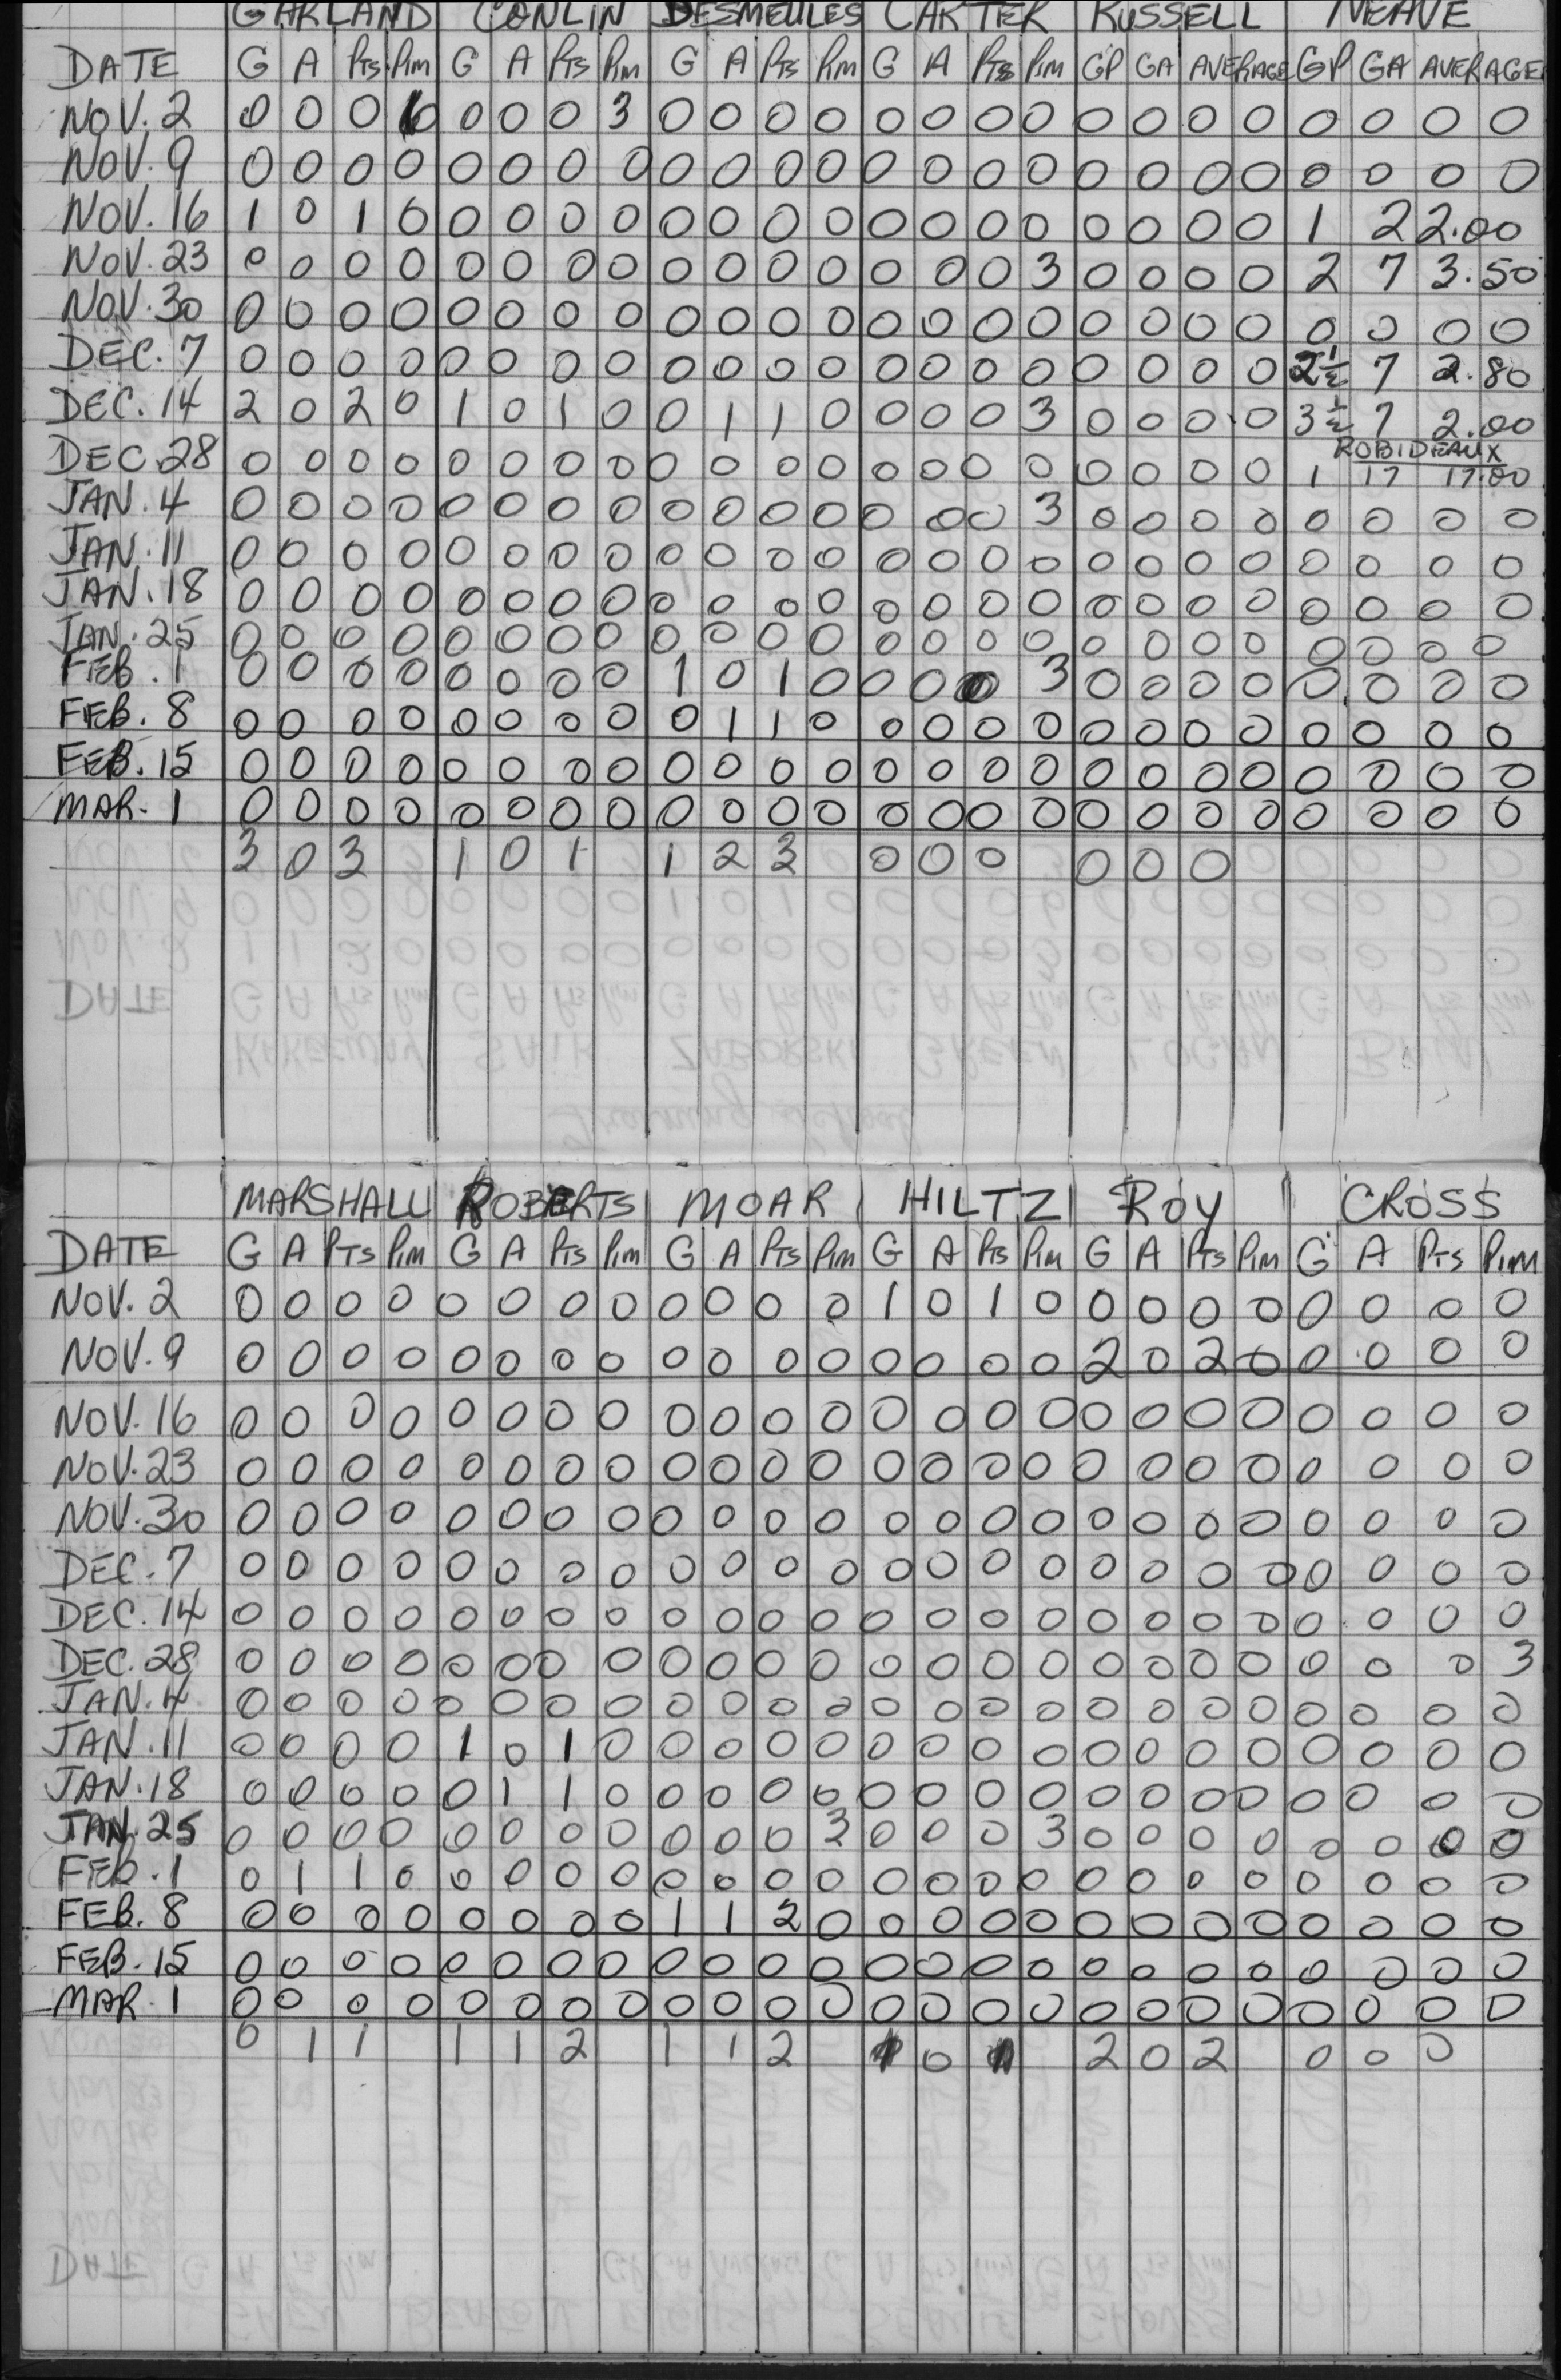 GARLAND CONLIN DESMEULES CARTER RUSSELL NEAVE
DATE G A Pts Pim G A Pts Pim G A Pts Pim G A Pts Pim GP GA AVERAGE GP GA AVERAGE
NOV. 2 0 0 0 6 0 0 0 3 0 0 0 0 0 0 0 0 0 0 0 0 0 0 0 0
NOV. 9 0 0 0 0 0 0 0 0 0 0 0 0 0 0 0 0 0 0 0 0 0 0 0 0
NOV. 16 1 0 1 0 0 0 0 0 0 0 0 0 0 0 0 0 0 0 0 0 1 2 2.00
NOV. 23 0 0 0 0 0 0 0 0 0 0 0 0 0 0 0 3 0 0 0 0 2 7 3.50
NOV. 30 0 0 0 0 0 0 0 0 0 0 0 0 0 0 0 0 0 0 0 0 0 0 0 0
DEC. 7 0 0 0 0 0 0 0 0 0 0 0 0 0 0 0 0 0 0 0 0 2½ 7 2.80
DEC. 14 2 0 2 0 1 0 1 0 0 1 1 0 0 0 0 3 0 0 0 0 3½ 7 2.00
ROBIDEAUX
DEC. 28 0 0 0 0 0 0 0 0 0 0 0 0 0 0 0 0 0 0 0 0 1 17 17.00
JAN. 4 0 0 0 0 0 0 0 0 0 0 0 0 0 0 0 3 0 0 0 0 0 0 0 0
JAN. 11 0 0 0 0 0 0 0 0 0 0 0 0 0 0 0 0 0 0 0 0 0 0 0 0
JAN. 18 0 0 0 0 0 0 0 0 0 0 0 0 0 0 0 0 0 0 0 0 0 0 0 0
JAN. 25 0 0 0 0 0 0 0 0 0 0 0 0 0 0 0 0 0 0 0 0 0 0 0 0
FEB. 1 0 0 0 0 0 0 0 0 1 0 1 0 0 0 0 3 0 0 0 0 0 0 0 0
FEB. 8 0 0 0 0 0 0 0 0 0 1 1 0 0 0 0 0 0 0 0 0 0 0 0 0
FEB. 15 0 0 0 0 0 0 0 0 0 0 0 0 0 0 0 0 0 0 0 0 0 0 0 0
MAR. 1 0 0 0 0 0 0 0 0 0 0 0 0 0 0 0 0 0 0 0 0 0 0 0 0
3 0 3 1 0 1 1 2 3 0 0 0 0 0 0
MARSHALL ROBERTS MOAR HILTZ ROY CROSS
DATE G A PTS Pim G A Pts Pim G A PTS Pim G A Pts Pim G A PTS Pim G A PTS PIM
NOV. 2 0 0 0 0 0 0 0 0 0 0 0 0 1 0 1 0 0 0 0 0 0 0 0 0
NOV. 9 0 0 0 0 0 0 0 0 0 0 0 0 0 0 0 0 2 0 2 0 0 0 0 0
NOV. 16 0 0 0 0 0 0 0 0 0 0 0 0 0 0 0 0 0 0 0 0 0 0 0 0
NOV. 23 0 0 0 0 0 0 0 0 0 0 0 0 0 0 0 0 0 0 0 0 0 0 0 0
NOV. 30 0 0 0 0 0 0 0 0 0 0 0 0 0 0 0 0 0 0 0 0 0 0 0 0
DEC. 7 0 0 0 0 0 0 0 0 0 0 0 0 0 0 0 0 0 0 0 0 0 0 0 0
DEC. 14 0 0 0 0 0 0 0 0 0 0 0 0 0 0 0 0 0 0 0 0 0 0 0 0
DEC. 28 0 0 0 0 0 0 0 0 0 0 0 0 0 0 0 0 0 0 0 0 0 0 0 3
JAN. 4 0 0 0 0 0 0 0 0 0 0 0 0 0 0 0 0 0 0 0 0 0 0 0 0
JAN. 11 0 0 0 0 1 0 1 0 0 0 0 0 0 0 0 0 0 0 0 0 0 0 0 0
JAN. 18 0 0 0 0 0 1 1 0 0 0 0 0 0 0 0 0 0 0 0 0 0 0 0 0
JAN. 25 0 0 0 0 0 0 0 0 0 0 0 3 0 0 0 3 0 0 0 0 0 0 0 0
FEB. 1 0 1 1 0 0 0 0 0 0 0 0 0 0 0 0 0 0 0 0 0 0 0 0 0
FEB. 8 0 0 0 0 0 0 0 0 1 1 2 0 0 0 0 0 0 0 0 0 0 0 0 0
FEB. 15 0 0 0 0 0 0 0 0 0 0 0 0 0 0 0 0 0 0 0 0 0 0 0 0
MAR. 1 0 0 0 0 0 0 0 0 0 0 0 0 0 0 0 0 0 0 0 0 0 0 0 0
0 1 1 1 1 2 1 1 2 1 0 1 2 0 2 0 0 0